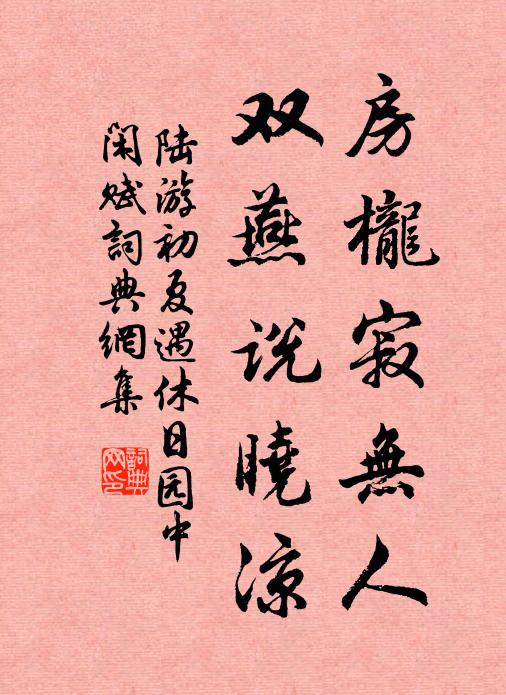 房櫳寂無人
双燕説曉凉
陆游初夏遇休日园中
闲赋詞典網集
詞典
网印